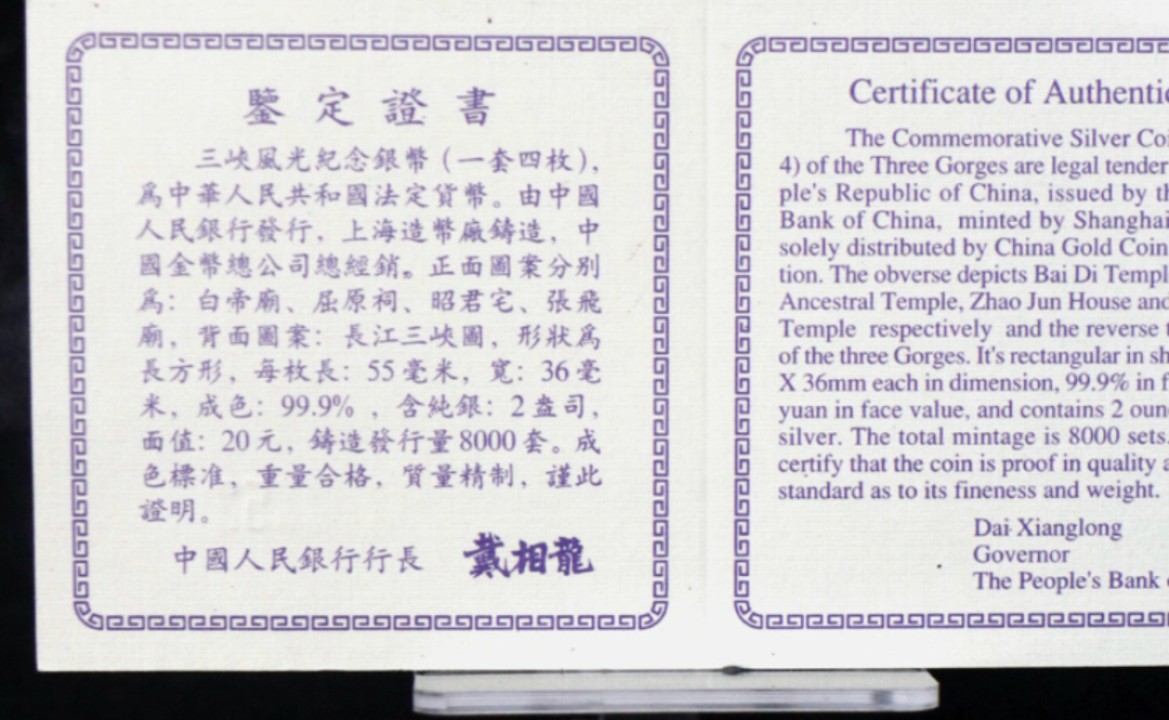 鑒定證書
三峽風光紀念銀幣（一套四枚），
爲中華人民共和國法定貨幣。由中國
人民銀行發行，上海造幣廠鑄造，中
國金幣總公司總經銷。正面圖案分别
爲：白帝廟、屈原祠、昭君宅、張飛
廟，背面圖案：長江三峽圖，形狀爲
長方形，每枚長：55毫米，寬：36毫
米，成色：99.9%，含純銀：2盎司，
面值：20元，鑄造發行量8000套。成
色標准，重量合格，質量精制，謹此
證明。
中國人民銀行行長 戴相龍
Certificate of
The Commemorative Silver
4) of the Three Gorges are legal tender
ple's Republic of China, issued by
Bank of China, minted by
solely distributed by China Gold Coin
tion. The obverse depicts Bai Di
Ancestral Temple, Zhao Jun House and
Temple respectively and the reverse
of the three Gorges. It's rectangular in
X 36mm each in dimension, 99.9% in
yuan in face value, and contains 2
silver. The total mintage is 8000 sets.
certify that the coin is proof in quality
standard as to its fineness and weight.
Dai Xianglong
Governor
The People's Bank